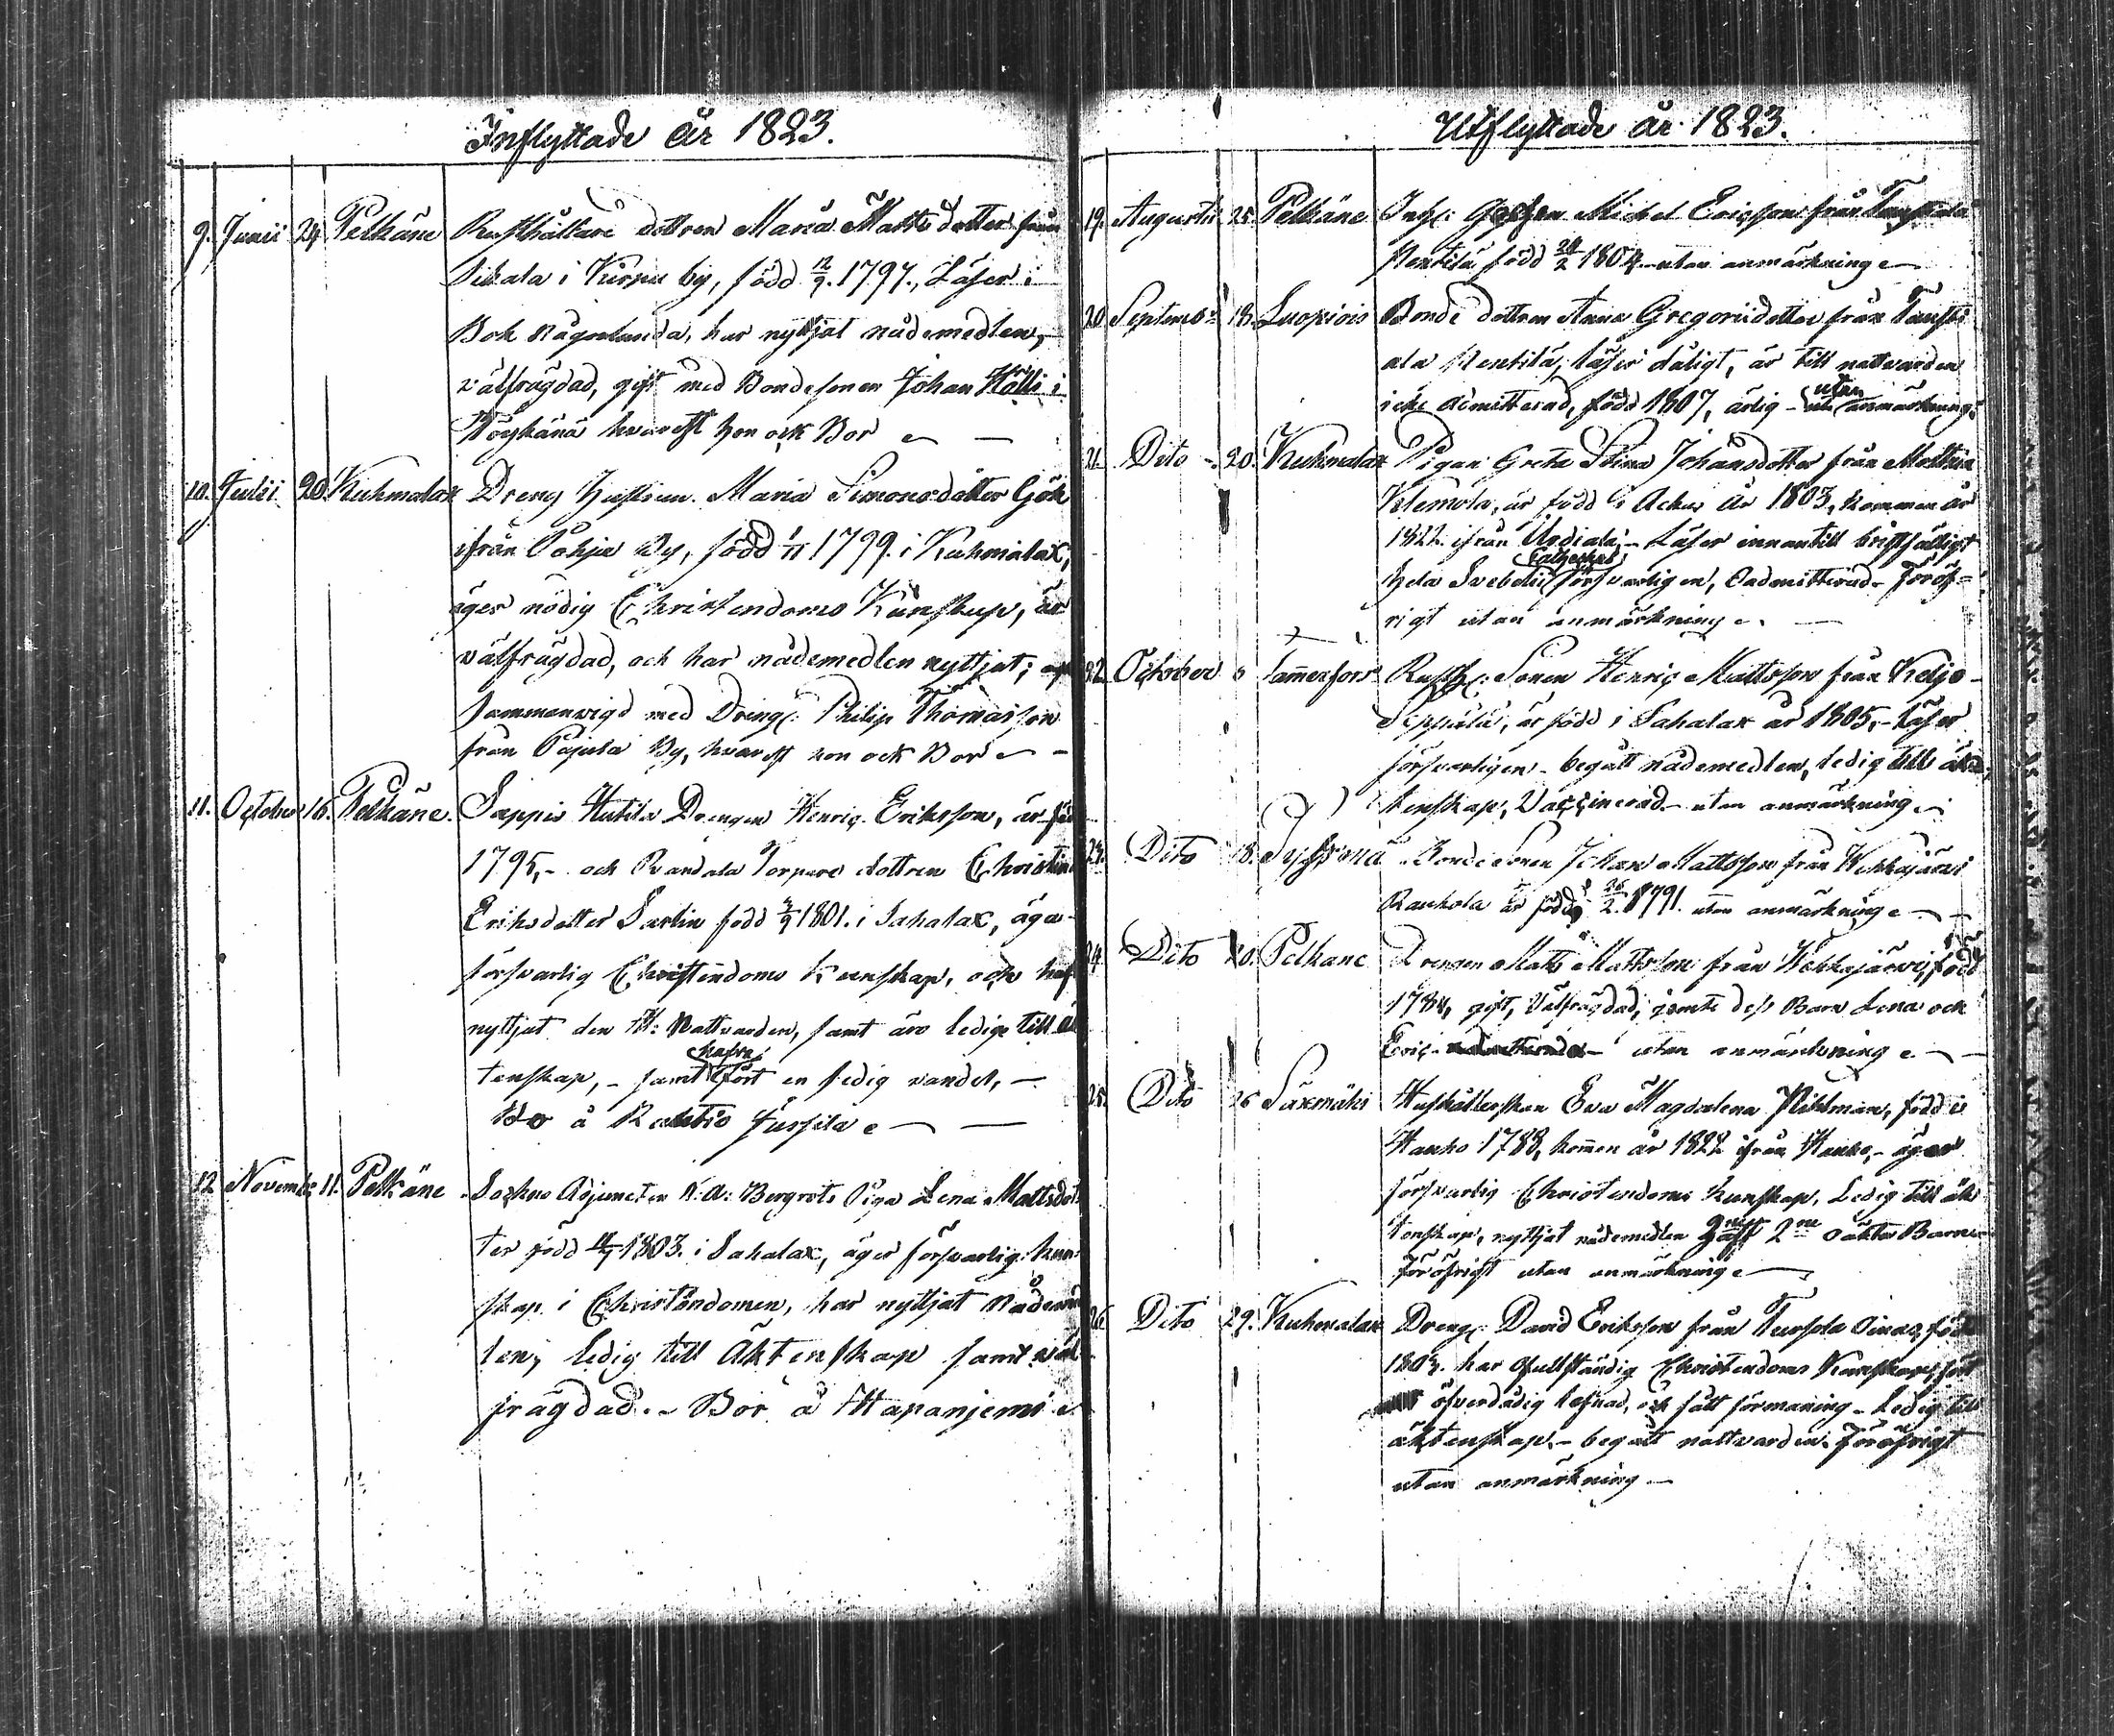 Inflyttade År 1823.
9. Junii 24 Pelkäne Rusthållare dottren Maria Matts dotter från
Sikala i Kirpu by, född 12/9. 1797., Läser i
Bok någorlunda, har nyttjat nådemedlen,
välfrägdad, gift med Bondesonen Johan
hvarest hon ock Bor
10. Julii 20. Kuhmalax Dreng Hustrun Maria Simonsdotter Gök
ifrån Pohja By, född 1/11 1799. i Kuhmalax,
äger nödig Christendoms Kunskap, är
välfrägdad, och har nådemedlen nyttjat;
Sammanvigd med Drengs: Philip Thomasson
från Pajula By, hvarest hon ock Bor
11. October 16. Pelkäne. Sappis Hutila Drengen Henric Eriksson, är föd
1795,- och Randala Torpare dottren Christina
Eriksdotter Sarlin född 3/9 1801. i Sahalax, äga
försvarlig Christendoms Kunskap, och haf
nyttjat den H: Nattvarden, samt äro lediga till äk
tenskap, - samt hafva fört en sedig vandel, -
Bo å Rautio Jussila
12. Novemb: 11. Pelkäne Sockne Adjuncten N: A: Bergrots Piga Lena Mattsdot
ter född 1803. i Sahalax, äger försvarlig kun
skap i Christendomen, har nyttjat Nådemed
len, ledig till Äktenskap samt väl
frägdad. - Bor å Haapaniemi
Utflyttade år 1823.
19. Augustii 25. Pelkäne Michel Ericsson från
Pentilä född 24/2 1804 utan anmärkning
20. Septemb: 18. Luopiois Bonde dottren Anna Gregoriidotter från Tausti
ala Pentilä, läser dåligt, är till nattvarden
icke admitterad, född 1807, ärlig - utan anmärkning
21. Dito 20. Kuhmalax Pigan Greta Stina Johansdotter från Mattila
Klemola, är född i Ackas år 1803, kommen år
1822 ifrån Urdiala, - Läser innantill bristfälligt
hela Svebelii Catheches försvarligen, Oadmitterad. Föröf-
rigt utan anmärkning.
22. October Tammerfors Rusth: Sonen Henric Mattsson från Keljo
Seppälä, är född i Sahalax år 1805, - läser
försvarligen - begått nådemedlen, ledig till äk
tenskap, Vaccinerad - utan anmärkning
23. Dito 18. Bondesonen Johan Mattsson från Wehkajärvi
Rauhola är född 26/2. 1791. utan anmärkning
24. Dito 20. Pelkane Drengen Matts Mattsson från Wehkajärvi, född
1784, gift, Välfrägdad, jemte dess Barn Lena och
Eric - utan anmärkning
25. Dito 26 Säxmäki Hushållerskan Eva Magdalena Pihlman, född i
Hauho 1788, kommen år 1822 ifrån Hauho, - äger
försvarlig Christendoms kunskap, Ledig till äk
tenskap, nyttjat nådemedlen 2ne oäkta Barn
föröfrigt utan anmärkning
26. Dito 29. Kuhmalax Drengs: David Eriksson från född
1803. har ofullständig Christendoms Kunskap, fört
öfverdådig lefnad, och fått förmaning - Ledig till
äktenskap, - begått nattvarden. Föröfrigt
utan anmärkning -